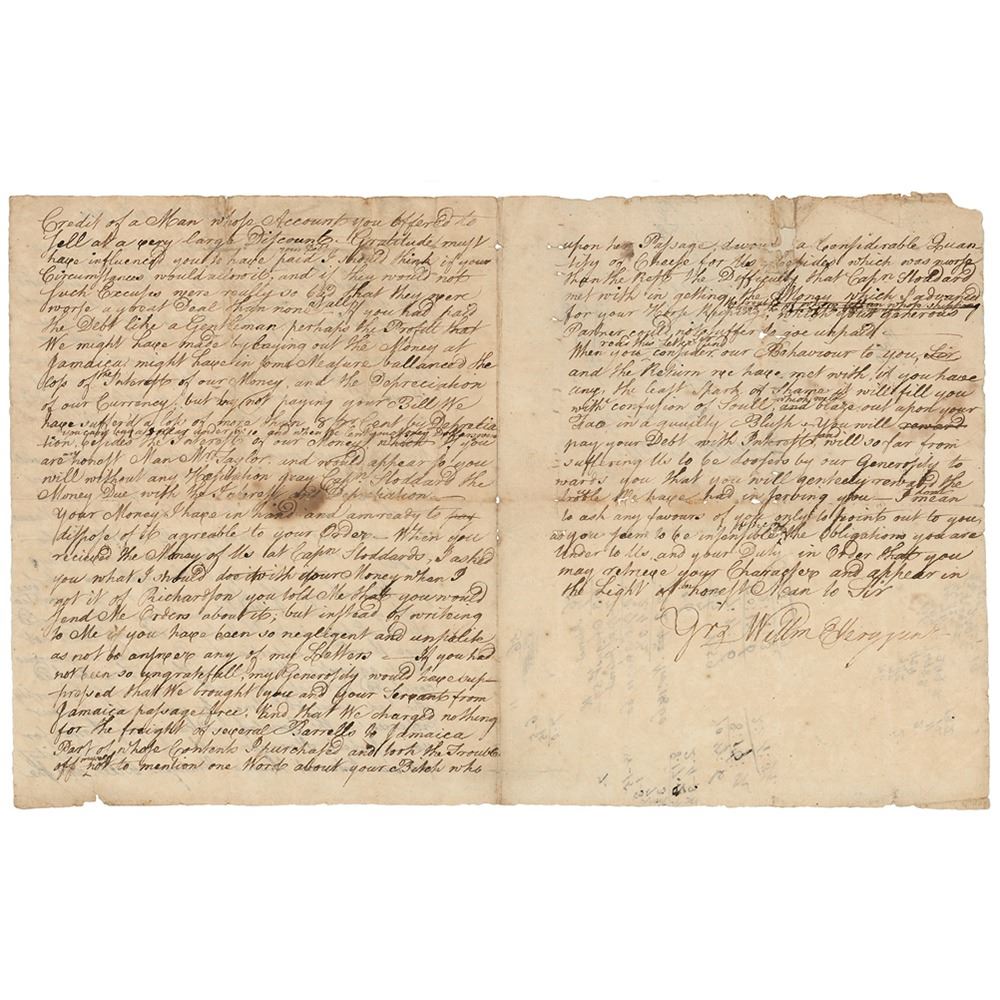 Credit of a Man whose Account you offered to
sell at a very large Discount. Gratitude must
have influenced you to have paid I should think if your
Circumstances would allow it, and if they would not
such Excuses were really so bad that they were
worse a great Deal than none at all. If you had paid
the Debt like a Gentleman perhaps the Profitt that
We might have made by laying out the Money at
Jamaica might have in some Measure ballanced the
loss of the Interest of our Money, and the Depreciation
of our Currency; but by not paying your Bill We
have sufferd a loss of more than Cent by Depretia
tion, besides the Interest of our Money If you
are honest Man Mr Taylor, and would appear so you
will without any Hesitation pay Capn. Stoddard the
Money Due with the Interest & Depretiation —
Your Money I have in hand and am ready to pay
dispose of it agreable to your Order — When you
recieved the Money of Us at Capn Stoddards, I asked
you what I should doo with your Money when I
got it of Richardson you told Me that you would
send Me Orders about it; but instead of writeing
to Me if you have been so negligent and unpolite
as not to answer any of my Letters — If you had
not been so ungratefull, my Generosity would have sup-
pressed that We brought you and your Servant from
Jamaica passage free. And that We charged nothing
for the freight of several Barrells to Jamaica
Part of whose Contents I purchased and took the Trouble
off myself not to mention one Word about your Bitch who
upon her Passage devour'd a Considirable Quan-
tity of Cheese for Us besides which was worse
than the rest the Difficulty that Capn Stoddard
met with in getting the Money which I advanced
for your Horse Keeping your Generous
Partner could not suffer to goe unpaid —
read this letter and
When you consider our Behaviour to you, Sir
and the Return we have met with, if you have
any the least Spark of Shame it will fill you
with confusion of Soull, and blaze out upon your
Face in a guilty Blush & You will reward
pay your Debt with Interest and will so far from
suffering Us to be loosers by our Generosity to
wards you that you will genteely reward the
trouble We have had in serving you — I mean not
to ask any favours of you only to point out to you
as you seem to be insensible of the Obligations you are
under to Us, and your Duty in Order that you
may retrieve your Character and appear in
the Light of an honest Man to Sir
Yrs Willm